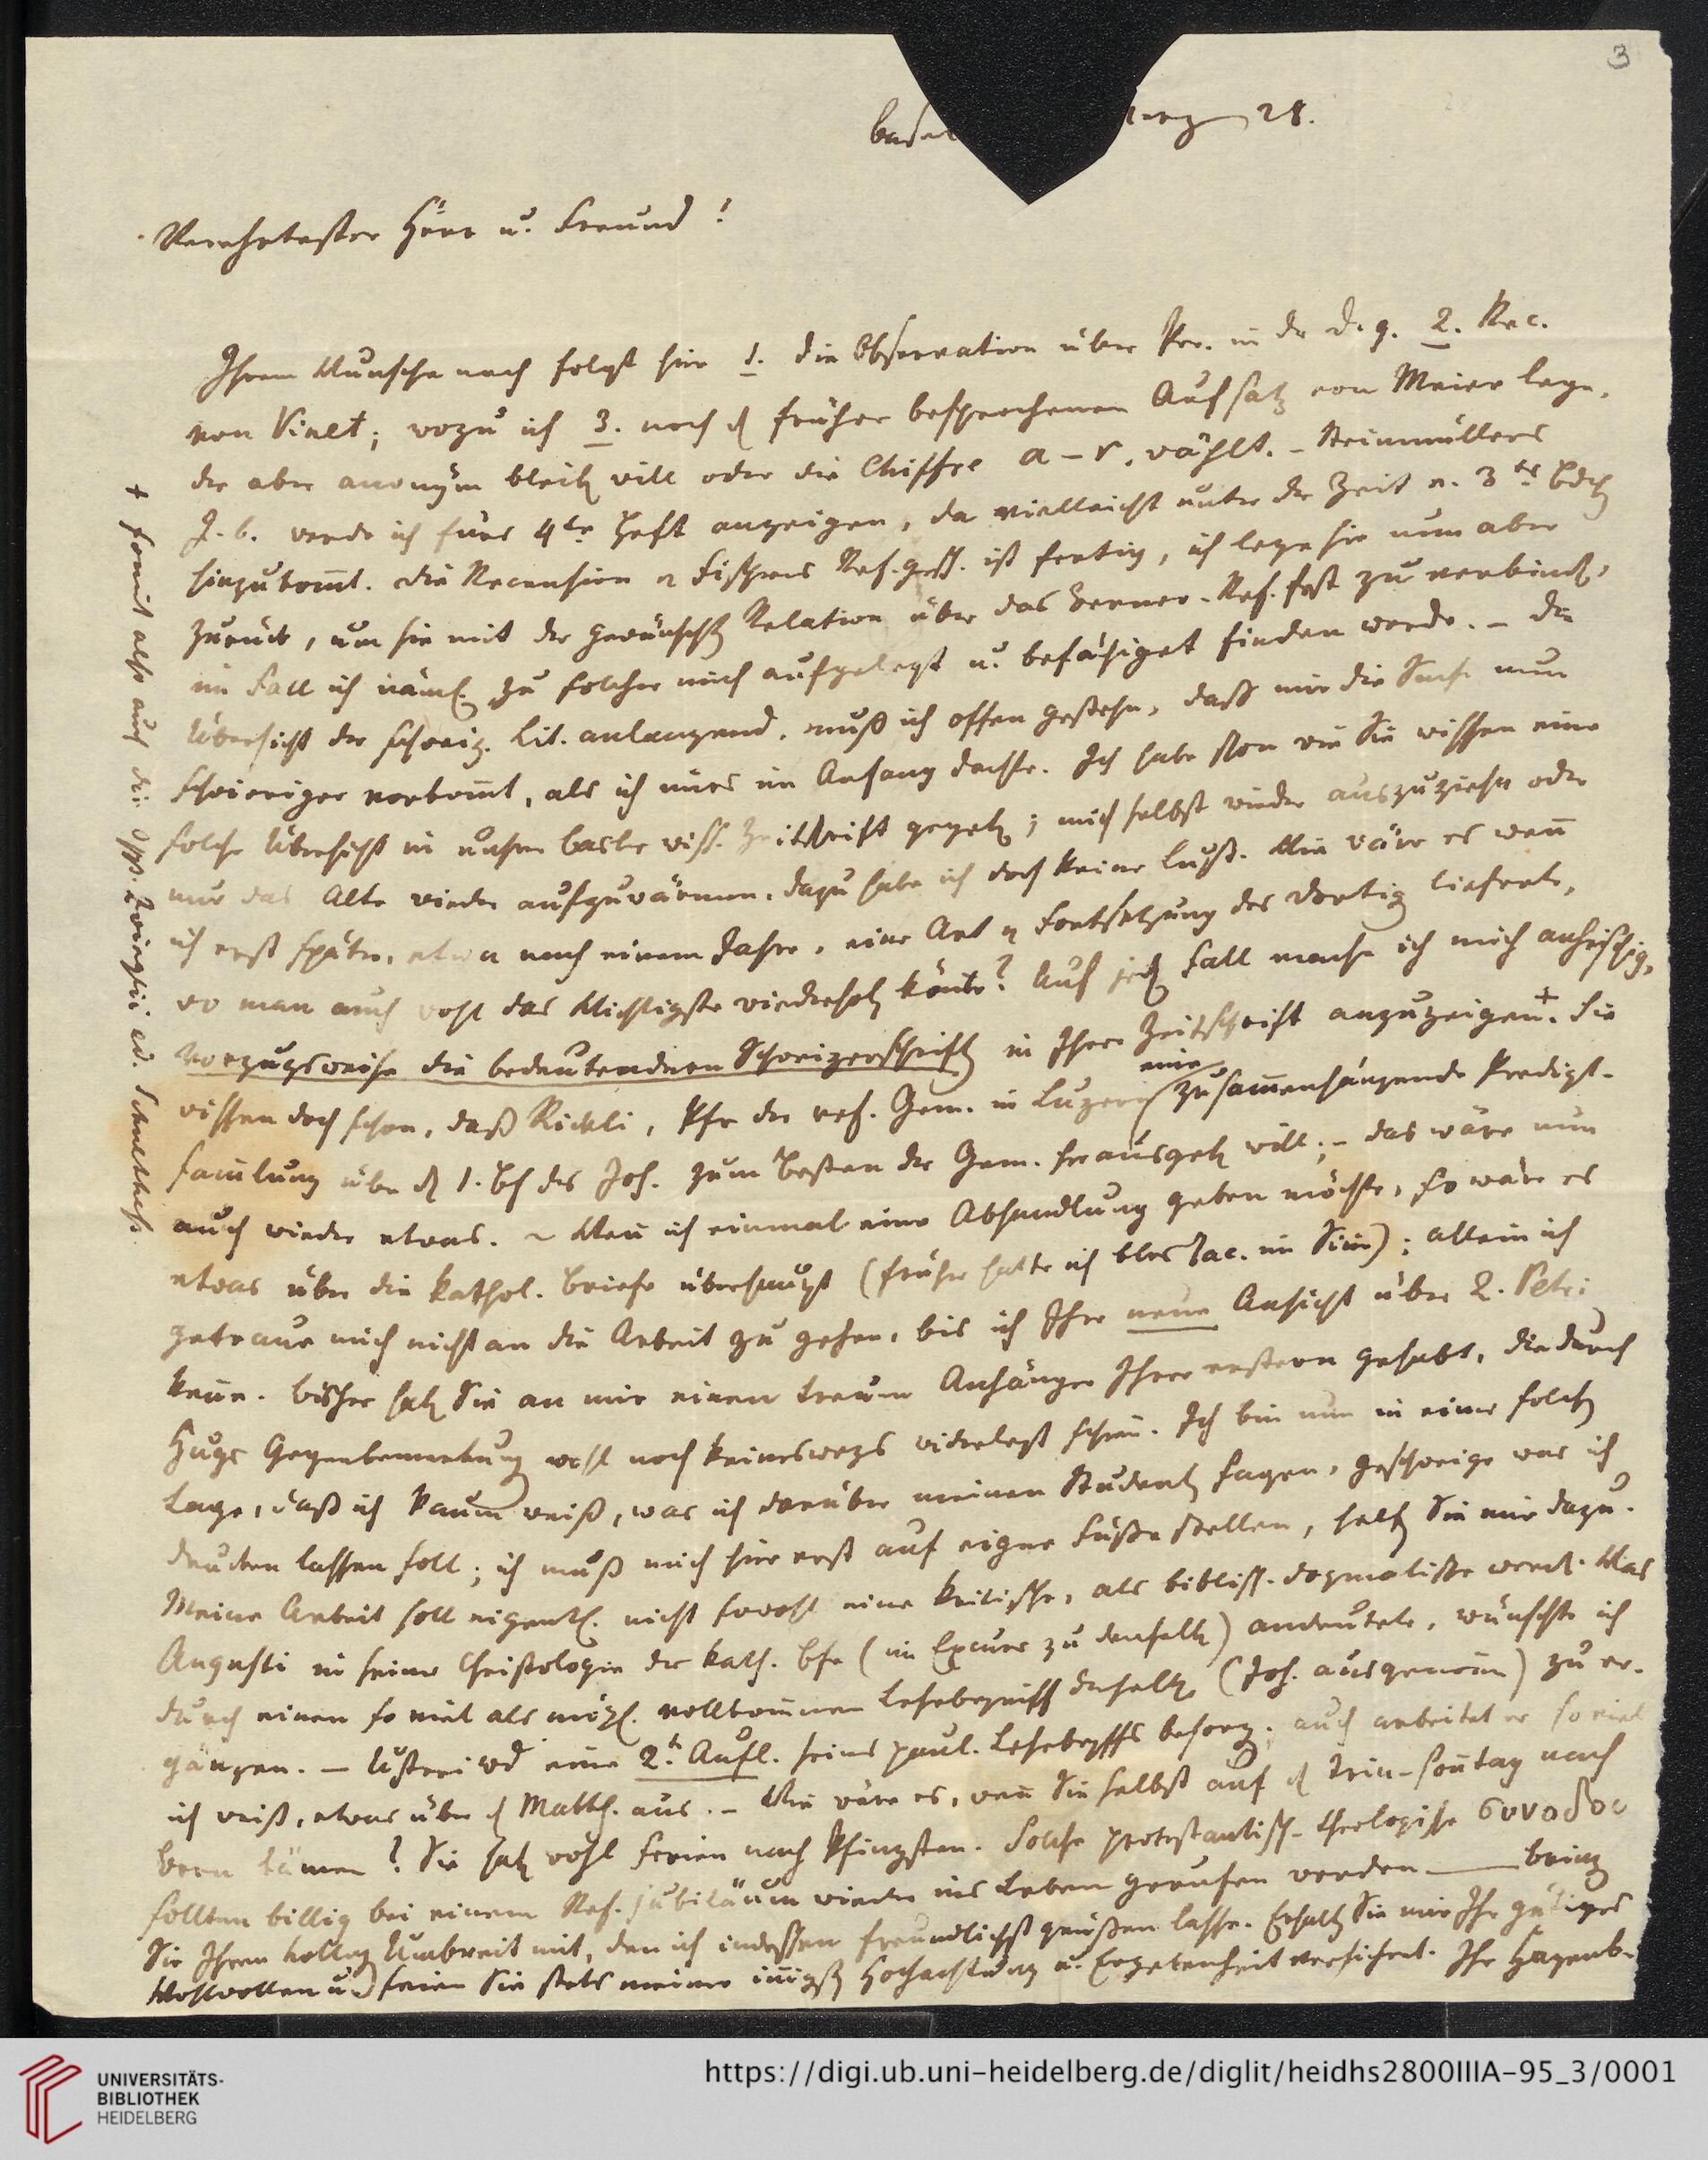 3
Basel März 28.
Verehrtester Herr u. Freund!
Ihrem Wunsche nach folgt hier 1. die Observation über Per. in der 2. Rec.
von Vinet; wozu ich 3. noch d früher besprochenen Aufsatz von Meier lege,
der aber anonym bleiben will oder die Chiffre a – r. wählt. – Steinmüllers
werde ich fürs 4te Heft anzeigen, da vielleicht unter der Zeit n. 3tes Bdch
hinzukomt. Die Recension v Fischers Ref.gesch. ist fertig, ich lege sie nun aber
zurück, um sie mit der gewünschten Relation über das Berner-Ref.fest zu verbinden,
im Fall ich näml. zu solcher mich aufgelegt u. befähiget finden werde. – Die
Übersicht der schweiz. Lit. anlangend, muß ich offen gestehn, daß mir die Sache nun
schwieriger vorkomt, als ich mirs im Anfang dachte. Ich habe schon wie Sie wissen eine
solche Übersicht in unsrer Basler wiss. Zeitschrift gegeben; mich selbst wieder auszuziehn oder
nur das Alte wieder aufzuwärmen, dazu habe ich doch keine Lust. Wie wäre es wenn
ich erst später, etwa nach einem Jahre, eine Art v Fortsetzung des dortigen lieferte,
wo man auch wohl das Wichtigste wiederholen könte? Auf jeden Fall mache ich mich anheischig,
vorzugsweise die bedeutendern Schweizerschriften in Ihrer Zeitschrift anzuzeigen +. Sie
wissen doch schon, daß Rickli, Pfr der ref. Gem. in Luzern eine zusamenhängende Predigt-
samlung über d 1. Bf des Joh. zum Besten der Gem. herausgeben will; – das wäre nun
auch wieder etwas. – Wen ich einmal eine Abhandlung geben möchte, so wäre es
etwas über die kathol. Briefe überhaupt (früher hatte ich blos Jac. im Sinn); allein ich
getraue mich nicht an die Arbeit zu gehen, bis ich Ihre neue Ansicht über 2. Petri
kenne. Bisher haben Sie an mir einen treuen Anhänger Ihrer erstern gehabt, die durch
Hugs Gegenbemerkung wohl noch keineswegs widerlegt schien. Ich bin nun in einer solchen
Lage, daß ich kaum weiß, was ich darüber meinen Studenten sagen, geschweige was ich
drucken lassen soll; ich muß mich hier erst auf eigne Füße stellen, helfen Sie mir dazu.
Meine Arbeit soll eigentl. nicht sowohl eine kritische, als biblisch-dogmatische werden. Was
Augusti in seiner Christologie der kath. Bfe (im Excurs zu denselben) andeutete, wünschte ich
durch einen so viel als mögl. vollkommnen Lehrbegriff derselben (Joh. ausgenomen) zu er-
gänzen. – Usteri wd eine 2te Aufl. seines paul. Lehrbegriffs besorgen; auch arbeitet er so viel
ich weiß, etwas über d Matth. aus. – Wie wäre es, wenn Sie selbst auf d Trin-Sontag nach
Bern kämen? Sie haben wohl Ferien nach Pfingsten. Solche protestantisch-theologische συνοδοι
sollten billig bei einem Ref. jubiläum wieder ins Leben gerufen werden. — bringen
Sie Ihren Kollegen Umbreit mit, den ich indessen freundlichst grüßen lasse. Erhalten Sie mir Ihr gütiges
Wohlwollen u. seien Sie stets meiner innigsten Hochachtung u. Ergebenheit versichert. Ihr Hagenb.
+ somit also auch die Opp. Zwinglii ed. Schulthess.
UNIVERSITÄTS-
BIBLIOTHEK
HEIDELBERG
https://digi.ub.uni-heidelberg.de/diglit/heidhs2800IIIA-95_3/0001